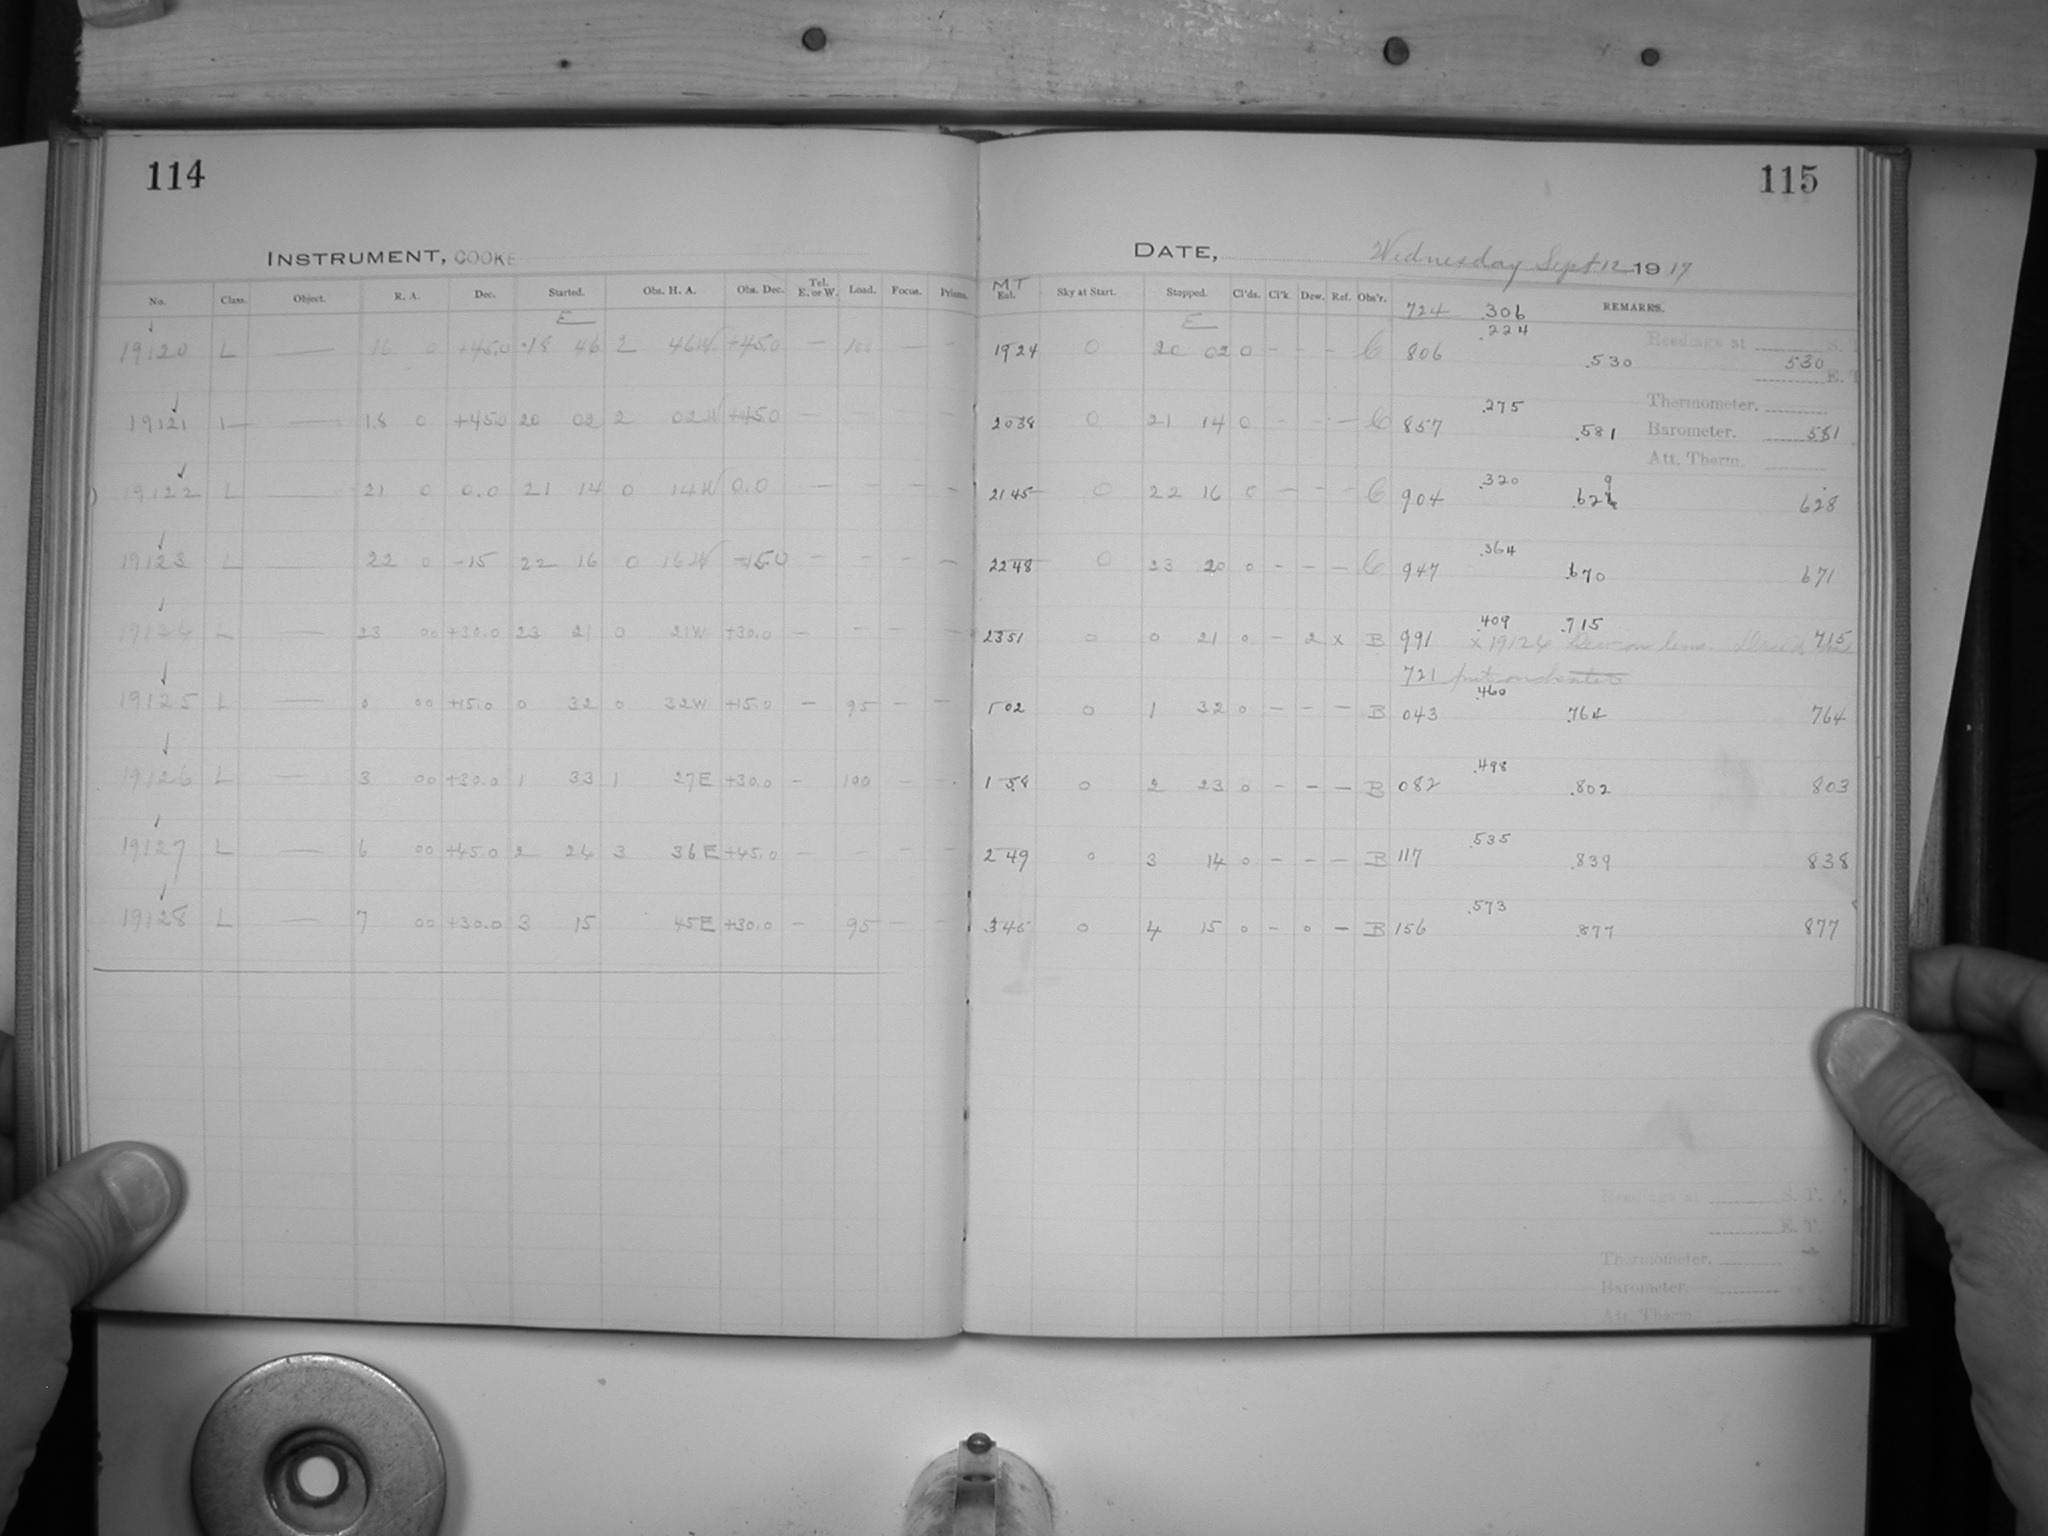 114
INSTRUMENT, COOKE
No. Class. Object. R. A. Dec. Started. Obs. H. A. Obs. Dec. Tel. E. or W. Load. Focus. Prisms.
E
19120 L — 16 0 +45.0 18 46 2 46W +45.0 — 100 — —
19121 L — 18 0 +45.0 20 02 2 02W +45.0 — — — —
19122 L — 21 0 0.0 21 14 0 14W 0.0 — — — —
19123 L — 22 0 -15 22 16 0 16W -15.0 — — — —
19124 L — 23 00 +30.0 23 21 0 21W +30.0 — — — —
19125 L — 0 00 +15.0 0 32 0 32W +15.0 — 95 — —
19126 L — 3 00 +30.0 1 33 1 27E +30.0 — 100 — —
19127 L — 6 00 +45.0 2 24 3 36E +45.0 — — — —
19128 L — 7 00 +30.0 3 15 45E +30.0 — 95 — —
115
DATE, Wednesday Sept 12 1917
MT
Sky at Start. Stopped. Cl'ds. Cl'k. Dew. Ref. Obs'r. REMARKS.
724 .306
E .224
1924 0 20 02 0 - - - C 806 .530 530
Readings at S. T.
E. T.
.275
2038 0 21 14 0 - - — C 857 .581 581
Thermometer.
Barometer.
Att. Therm.
.320
2145 0 22 16 0 — — — C 904 628
.364
2248 0 23 20 0 - - — C 947 .670 671
.409 .715
2351 0 0 21 0 - 2 x B 991 x 19124 Dew on lens. 715
721 put on
.460
102 0 1 32 0 - - — B 043 .764 764
.498
158 0 2 23 0 - - — B 082 .802 803
.535
249 0 3 14 0 - - — B 117 .839 838
.573
345 0 4 15 0 - 0 — B 156 .877 877
Readings at S. T.
E. T.
Thermometer.
Barometer.
Att. Therm.